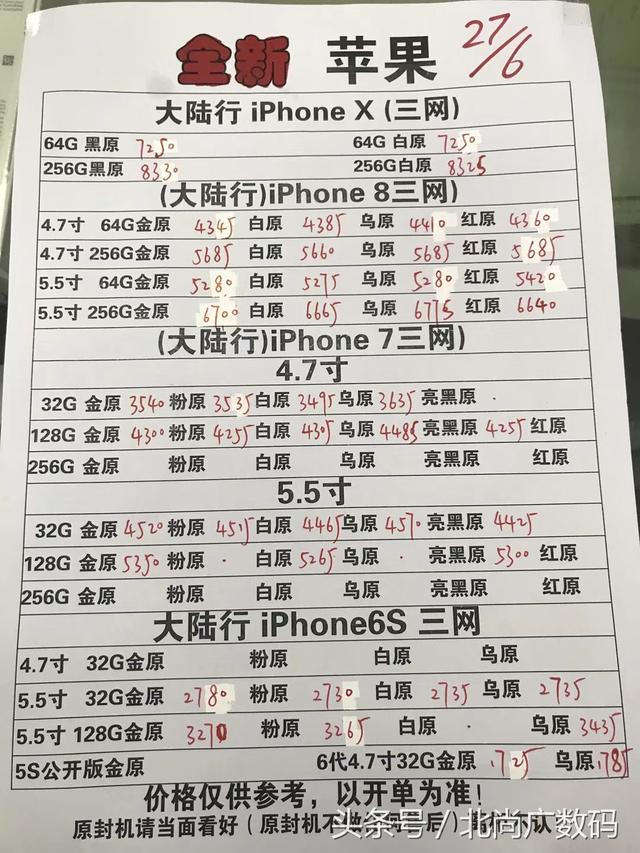 全新 苹果 27/6
大陆行 iPhone X (三网)
64G 黑原 7250 64G 白原 7250
256G黑原 8330 256G白原 8325
(大陆行)iPhone 8三网)
4.7寸 64G金原 4345 白原 4385 乌原 4410 红原 4360
4.7寸 256G金原 5685 白原 5660 乌原 5685 红原 5685
5.5寸 64G金原 5280 白原 5275 乌原 5280 红原 5420
5.5寸 256G金原 6700 白原 6665 乌原 6775 红原 6640
(大陆行)iPhone 7三网)
4.7寸
32G 金原 3540 粉原 3535 白原 3495 乌原 3635 亮黑原
128G 金原 4300 粉原 4255 白原 4305 乌原 4485 亮黑原 4255 红原
256G 金原 粉原 白原 乌原 亮黑原 红原
5.5寸
32G 金原 4520 粉原 4515 白原 4465 乌原 4570 亮黑原 4425
128G 金原 5350 粉原 白原 5265 乌原 亮黑原 5300 红原
256G 金原 粉原 白原 乌原 亮黑原 红原
大陆行 iPhone6S 三网
4.7寸 32G金原 粉原 白原 乌原
5.5寸 32G金原 2780 粉原 2730 白原 2735 乌原 2735
5.5寸 128G金原 3270 粉原 3265 白原 乌原 3435
5S公开版金原 6代4.7寸32G金原 1725 乌原 1785
价格仅供参考，以开单为准！
原封机请当面看好（原封机不
头条号 / 北尚广数码